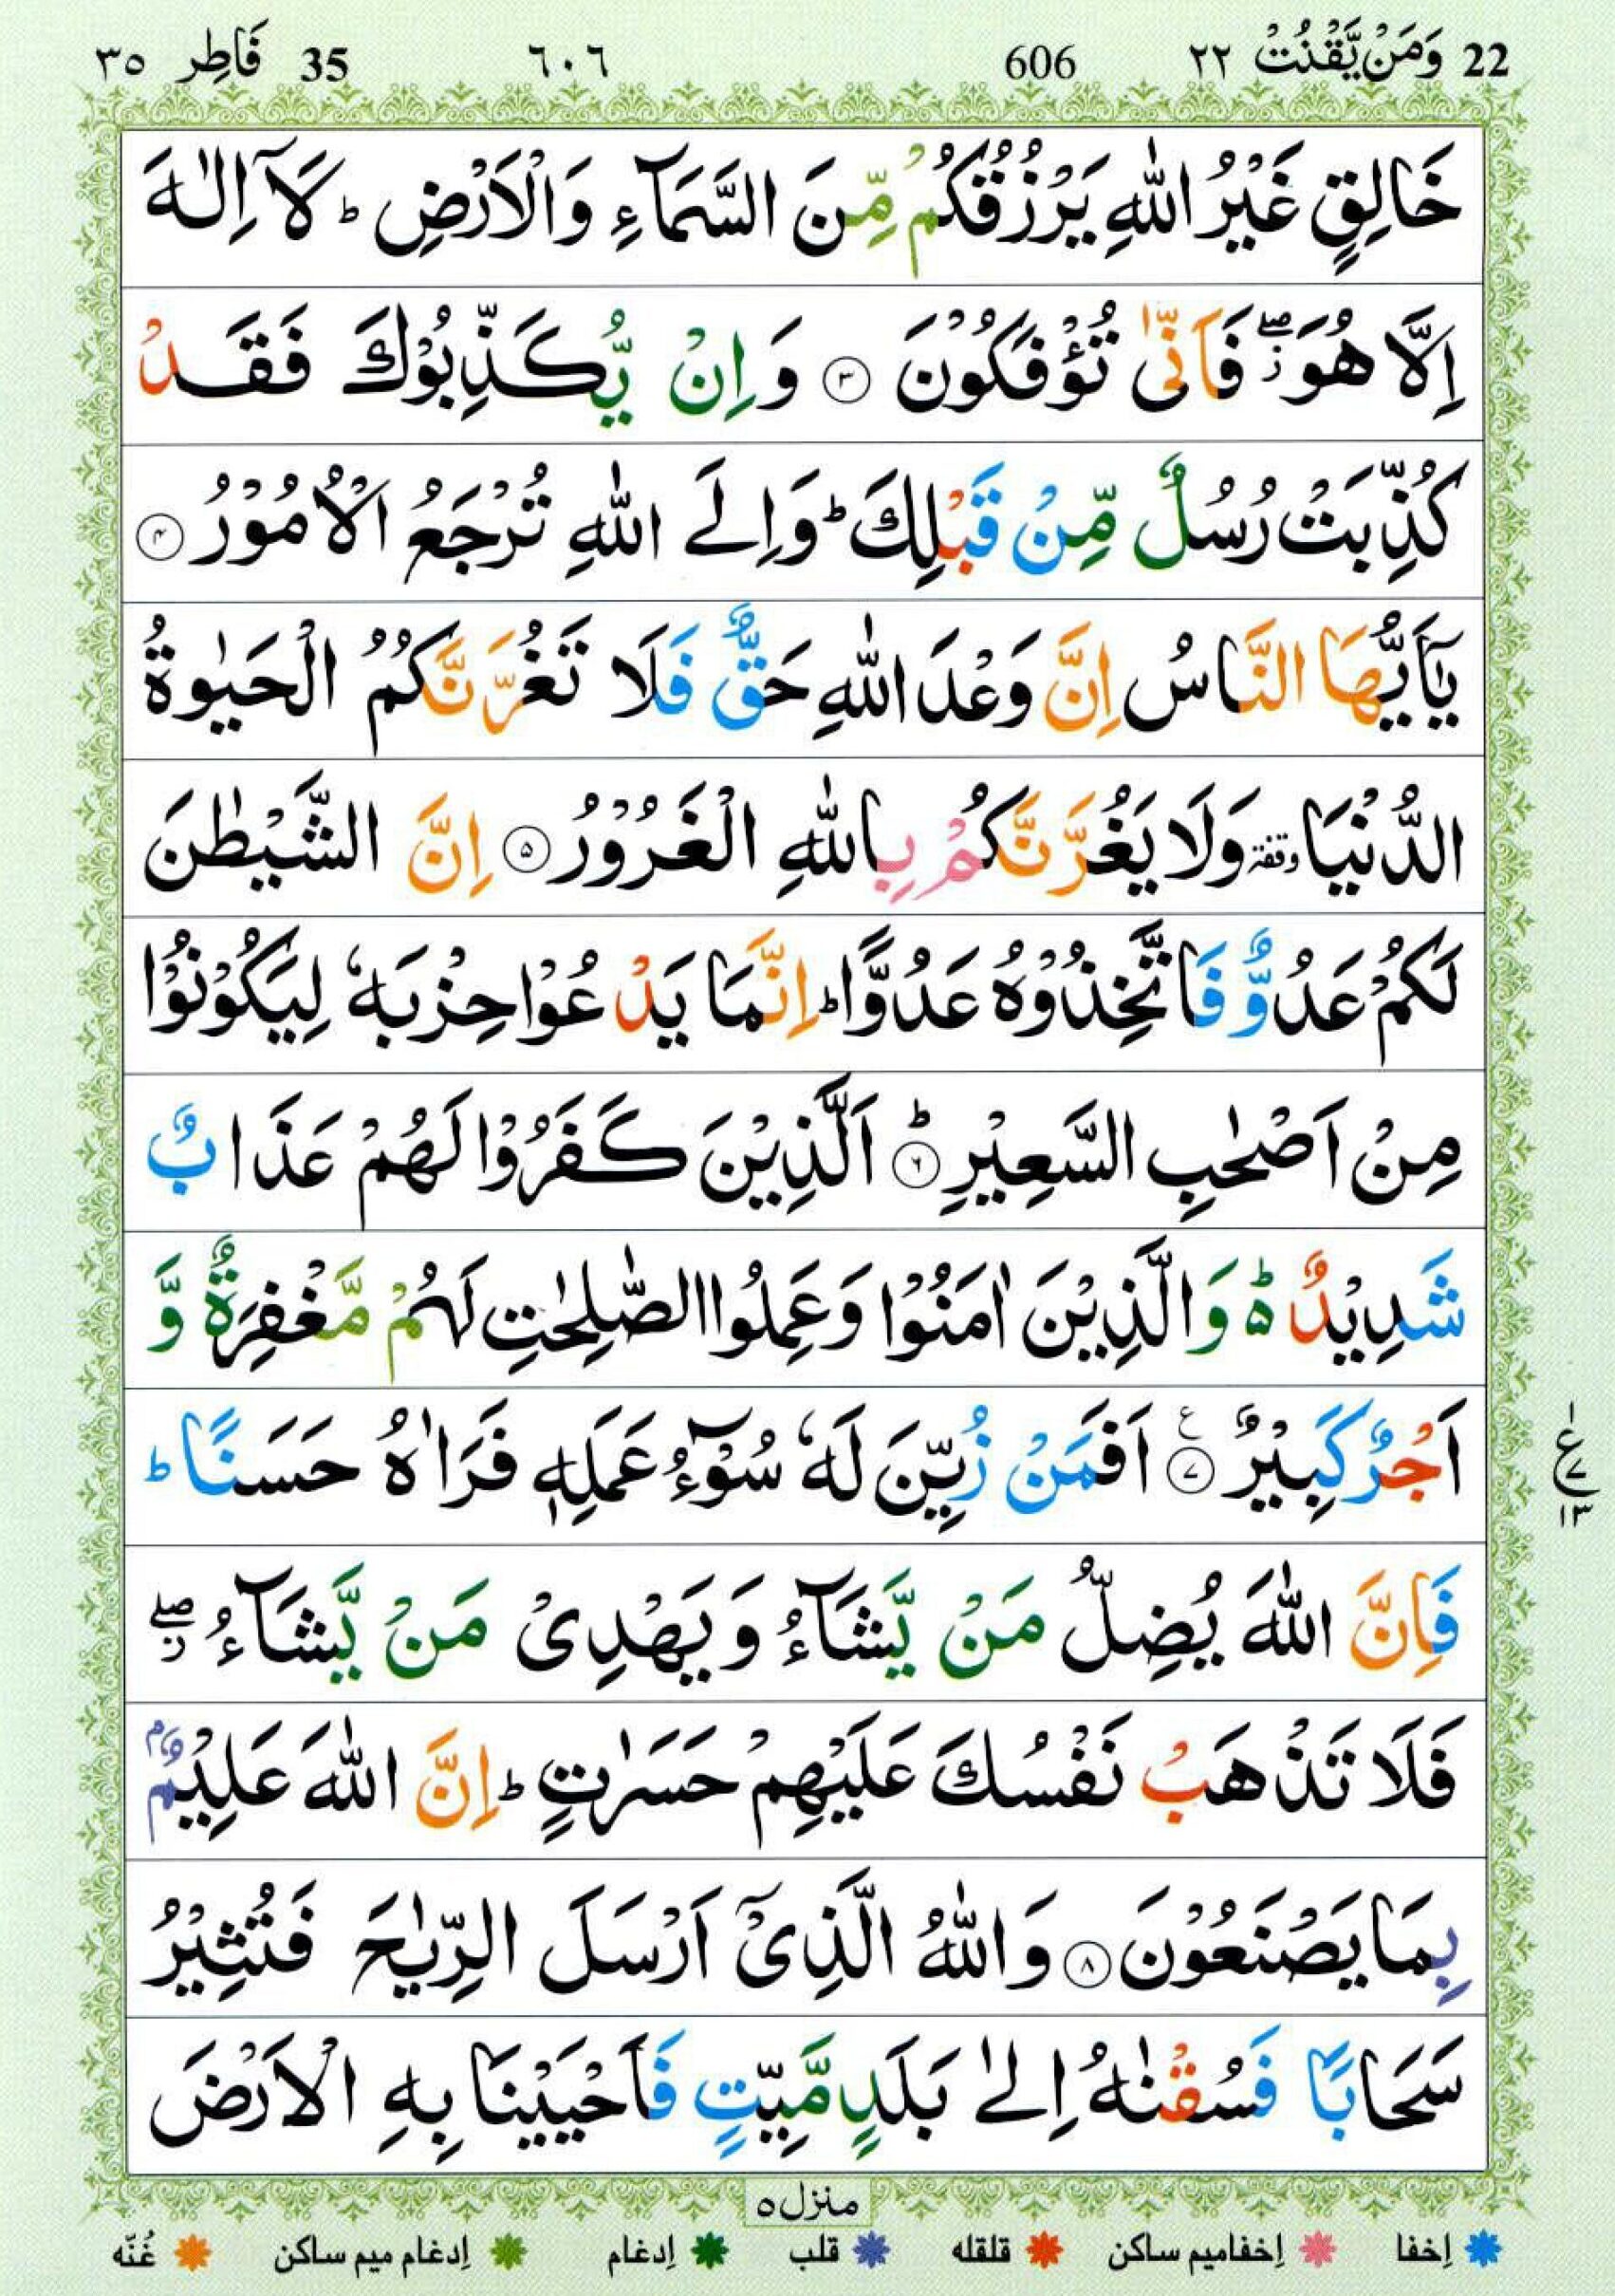 22 وَمَنْ يَّقْنُتْ ٢٢ 606 ٦٠٦ 35 فَاطِر ٣٥
خَالِقٍ غَيْرُ اللّٰهِ يَرْزُقُكُمْ مِّنَ السَّمَآءِ وَالْاَرْضِ ؕ لَاۤ اِلٰهَ
اِلَّا هُوَ ۖؗ فَاَنّٰى تُؤْفَكُوْنَ ۝٣ وَاِنْ يُّكَذِّبُوْكَ فَقَدْ
كُذِّبَتْ رُسُلٌ مِّنْ قَبْلِكَ ؕ وَاِلَى اللّٰهِ تُرْجَعُ الْاُمُوْرُ ۝٤
يٰۤاَيُّهَا النَّاسُ اِنَّ وَعْدَ اللّٰهِ حَقٌّ فَلَا تَغُرَّنَّكُمُ الْحَيٰوةُ
الدُّنْيَا وقفة وَلَا يَغُرَّنَّكُمْ بِاللّٰهِ الْغَرُوْرُ ۝٥ اِنَّ الشَّيْطٰنَ
لَكُمْ عَدُوٌّ فَاتَّخِذُوْهُ عَدُوًّا ؕ اِنَّمَا يَدْعُوْا حِزْبَهٗ لِيَكُوْنُوْا
مِنْ اَصْحٰبِ السَّعِيْرِ ۝٦ؕ اَلَّذِيْنَ كَفَرُوْا لَهُمْ عَذَابٌ
شَدِيْدٌ ۬ؕ وَالَّذِيْنَ اٰمَنُوْا وَعَمِلُوا الصّٰلِحٰتِ لَهُمْ مَّغْفِرَةٌ وَّ
اَجْرٌ كَبِيْرٌ ۝٧ع اَفَمَنْ زُيِّنَ لَهٗ سُوْٓءُ عَمَلِهٖ فَرَاٰهُ حَسَنًا ؕ
ع ١ ٧ ١٣
فَاِنَّ اللّٰهَ يُضِلُّ مَنْ يَّشَآءُ وَيَهْدِىْ مَنْ يَّشَآءُ ۖؗ
فَلَا تَذْهَبْ نَفْسُكَ عَلَيْهِمْ حَسَرٰتٍ ؕ اِنَّ اللّٰهَ عَلِيْمٌۢ
بِمَا يَصْنَعُوْنَ ۝٨ وَاللّٰهُ الَّذِىْۤ اَرْسَلَ الرِّيٰحَ فَتُثِيْرُ
سَحَابًا فَسُقْنٰهُ اِلٰى بَلَدٍ مَّيِّتٍ فَاَحْيَيْنَا بِهِ الْاَرْضَ
منزل ٥
إخفا إخفامیم ساکن قلقله قلب إدغام إدغام میم ساکن غُنّه